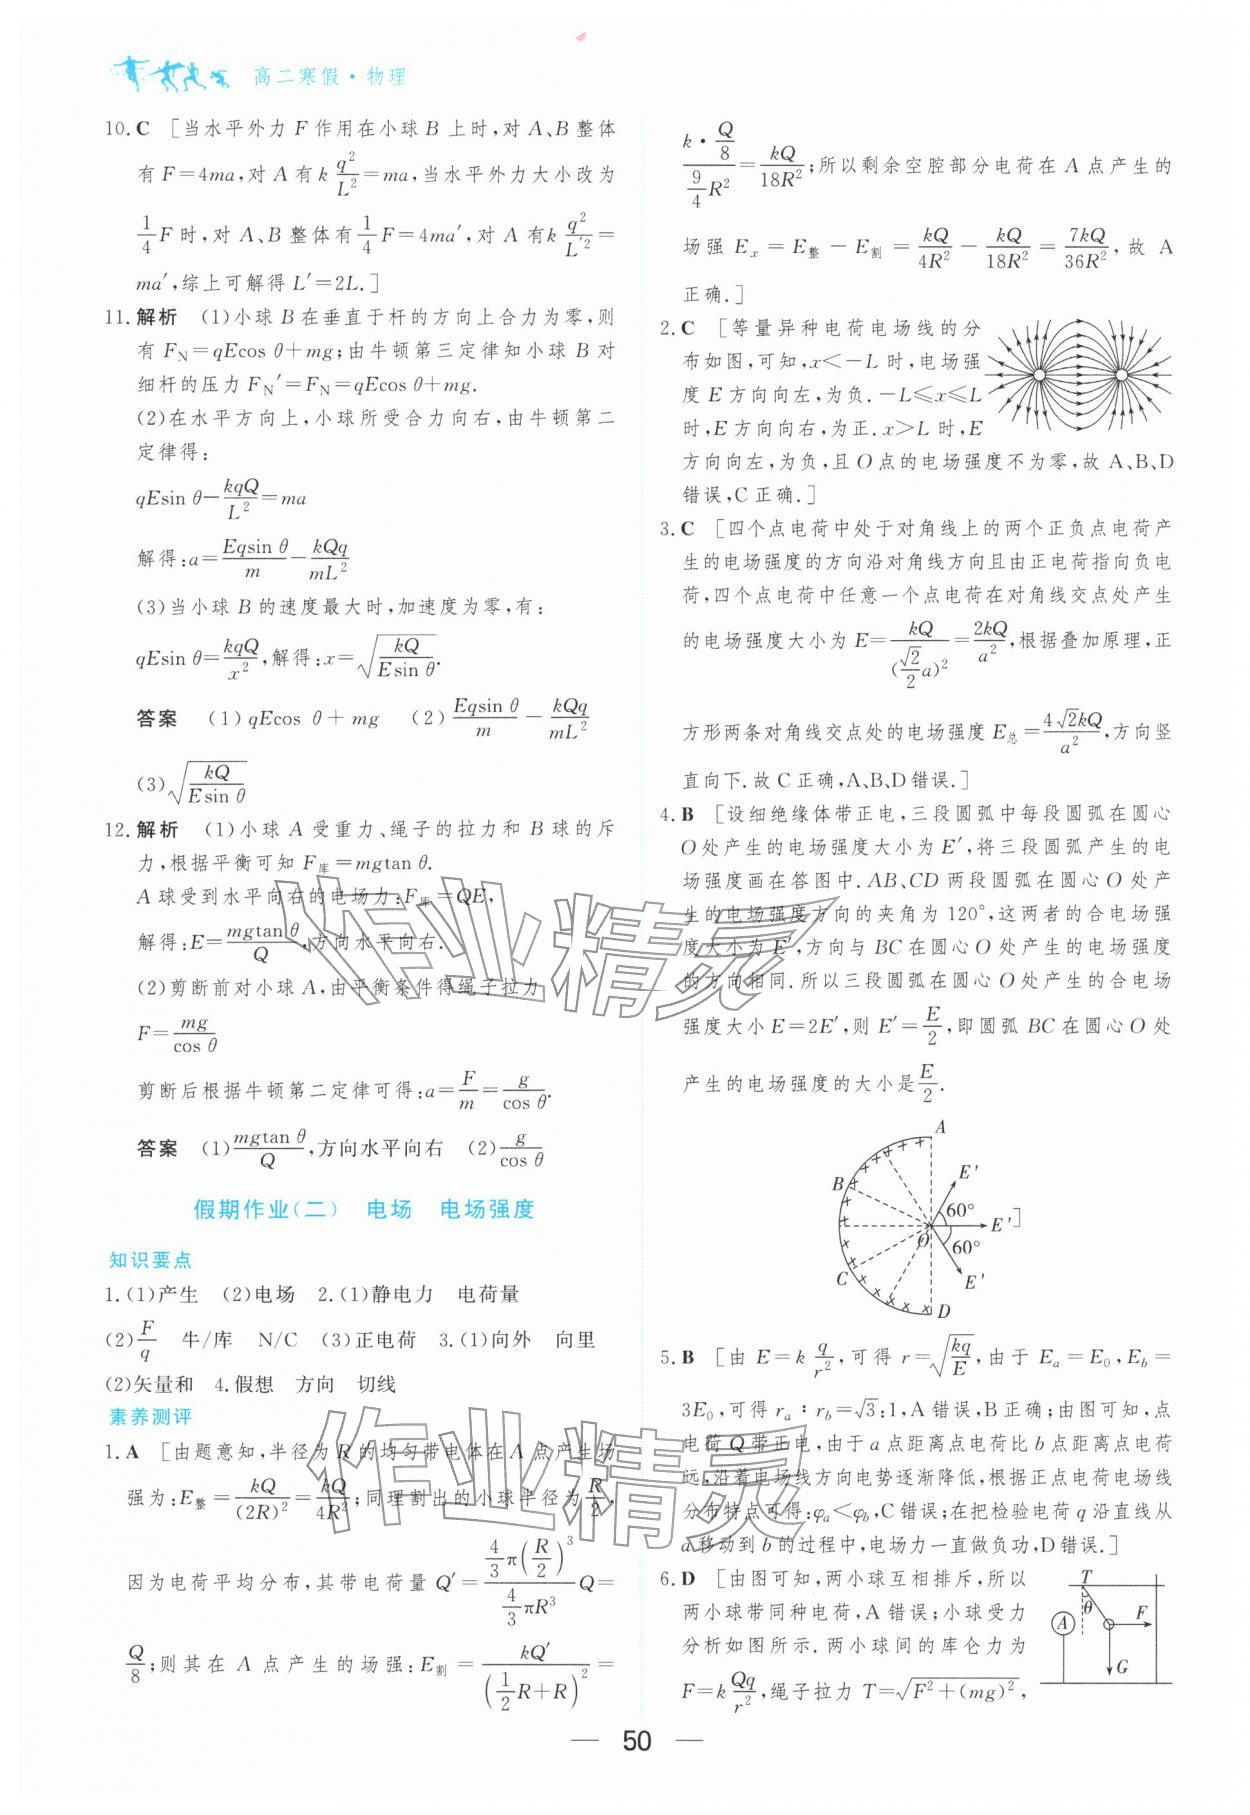 高二寒假·物理
10.C [当水平外力 F 作用在小球 B 上时,对 A、B 整体
有 F=4ma,对 A 有 k q²/L²=ma,当水平外力大小改为
1/4 F 时,对 A、B 整体有 1/4 F=4ma′,对 A 有 k q²/L′²=
ma′,综上可解得 L′=2L.]
11.解析 (1)小球 B 在垂直于杆的方向上合力为零,则
有 F_N=qEcos θ+mg;由牛顿第三定律知小球 B 对
细杆的压力 F_N′=F_N=qEcos θ+mg.
(2)在水平方向上,小球所受合力向右,由牛顿第二
定律得:
qEsin θ−kqQ/L²=ma
解得:a=Eqsin θ/m−kQq/mL²
(3)当小球 B 的速度最大时,加速度为零,有:
qEsin θ=kqQ/x²,解得:x=√(kQ/Esin θ).
答案 (1)qEcos θ+mg (2)Eqsin θ/m−kQq/mL²
(3)√(kQ/Esin θ)
12.解析 (1)小球 A 受重力、绳子的拉力和 B 球的斥
力,根据平衡可知 F库=mgtan θ.
A 球受到水平向右的电场力:F库=QE,
解得:E=mgtan θ/Q,方向水平向右.
(2)剪断前对小球 A,由平衡条件得绳子拉力
F=mg/cos θ
剪断后根据牛顿第二定律可得:a=F/m=g/cos θ.
答案 (1)mgtan θ/Q,方向水平向右 (2)g/cos θ
假期作业(二) 电场 电场强度
知识要点
1.(1)产生 (2)电场 2.(1)静电力 电荷量
(2)F/q 牛/库 N/C (3)正电荷 3.(1)向外 向里
(2)矢量和 4.假想 方向 切线
素养测评
1.A [由题意知,半径为 R 的均匀带电体在 A 点产生场
强为:E整=kQ/(2R)²=kQ/4R²;同理割出的小球半径为 R/2,
因为电荷平均分布,其带电荷量 Q′=(4/3 π(R/2)³)/(4/3 πR³) Q=
Q/8;则其在 A 点产生的场强:E割=kQ′/(1/2 R+R)²=
(k·Q/8)/(9/4 R²)=kQ/18R²;所以剩余空腔部分电荷在 A 点产生的
场强 Ex=E整−E割=kQ/4R²−kQ/18R²=7kQ/36R²,故 A
正确.]
2.C [等量异种电荷电场线的分
布如图,可知,x<−L 时,电场强
度 E 方向向左,为负.−L≤x≤L
时,E 方向向右,为正.x>L 时,E
方向向左,为负,且 O 点的电场强度不为零,故 A、B、D
错误,C 正确.]
3.C [四个点电荷中处于对角线上的两个正负点电荷产
生的电场强度的方向沿对角线方向且由正电荷指向负电
荷,四个点电荷中任意一个点电荷在对角线交点处产生
的电场强度大小为 E=kQ/(√2/2 a)²=2kQ/a²,根据叠加原理,正
方形两条对角线交点处的电场强度 E总=4√2kQ/a²,方向竖
直向下.故 C 正确,A、B、D 错误.]
4.B [设细绝缘体带正电,三段圆弧中每段圆弧在圆心
O 处产生的电场强度大小为 E′,将三段圆弧产生的电
场强度画在答图中.AB、CD 两段圆弧在圆心 O 处产
生的电场强度方向的夹角为 120°,这两者的合电场强
度大小为 E′,方向与 BC 在圆心 O 处产生的电场强度
的方向相同.所以三段圆弧在圆心 O 处产生的合电场
强度大小 E=2E′,则 E′=E/2,即圆弧 BC 在圆心 O 处
产生的电场强度的大小是 E/2.
A
B E′
60°
O E′ ]
60°
C E′
D
5.B [由 E=k q/r²,可得 r=√(kq/E),由于 Ea=E0,Eb=
3E0,可得 ra∶rb=√3:1,A 错误,B 正确;由图可知,点
电荷 Q 带正电,由于 a 点距离点电荷比 b 点距离点电荷
远,沿着电场线方向电势逐渐降低,根据正点电荷电场线
分布特点可得:φa<φb,C 错误;在把检验电荷 q 沿直线从
a 移动到 b 的过程中,电场力一直做负功,D 错误.]
6.D [由图可知,两小球互相排斥,所以
两小球带同种电荷,A 错误;小球受力
分析如图所示.两小球间的库仑力为
F=k Qq/r²,绳子拉力 T=√(F²+(mg)²),
T
θ
A F
G
作业精灵
作业精灵
50